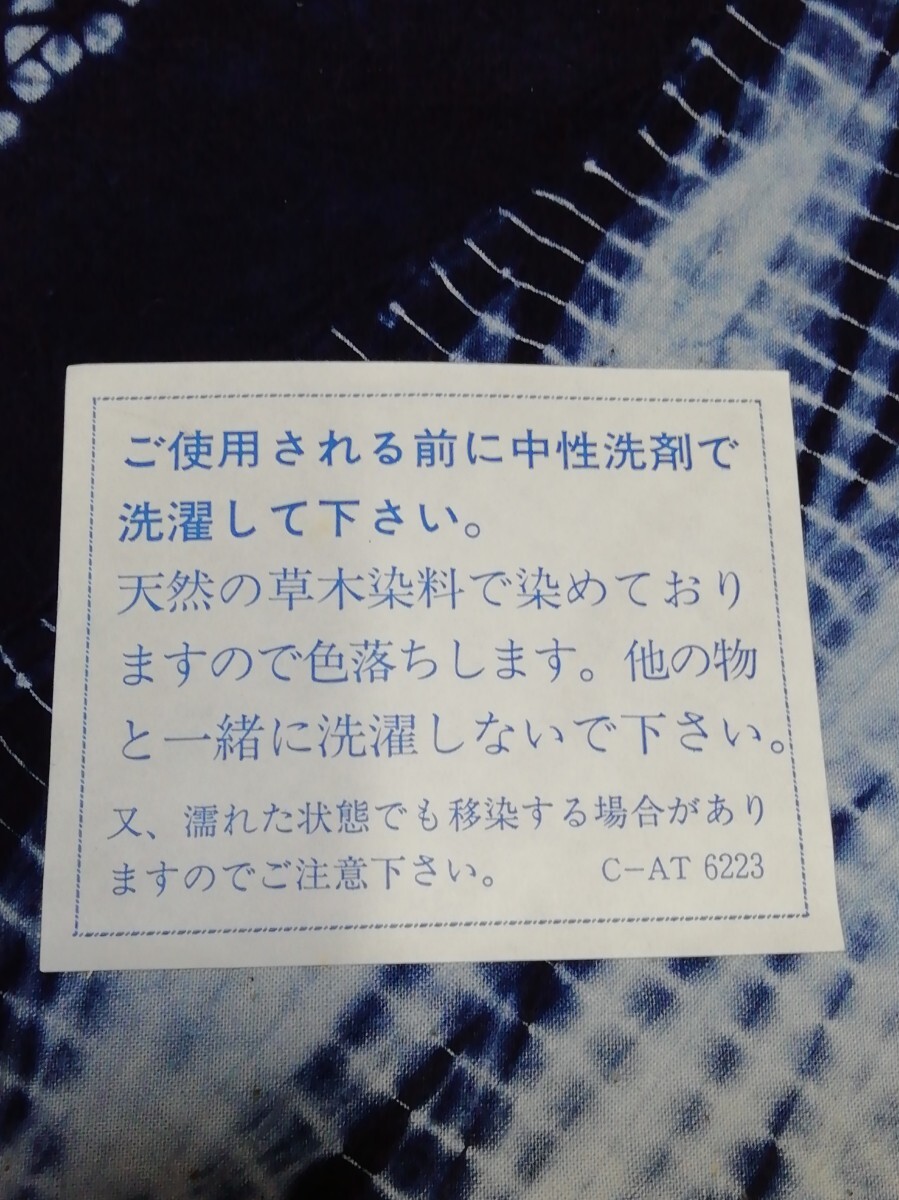 ご使用される前に中性洗剤で
洗濯して下さい。
天然の草木染料で染めており
ますので色落ちします。他の物
と一緒に洗濯しないで下さい。
又、濡れた状態でも移染する場合があり
ますのでご注意下さい。 C-AT 6223